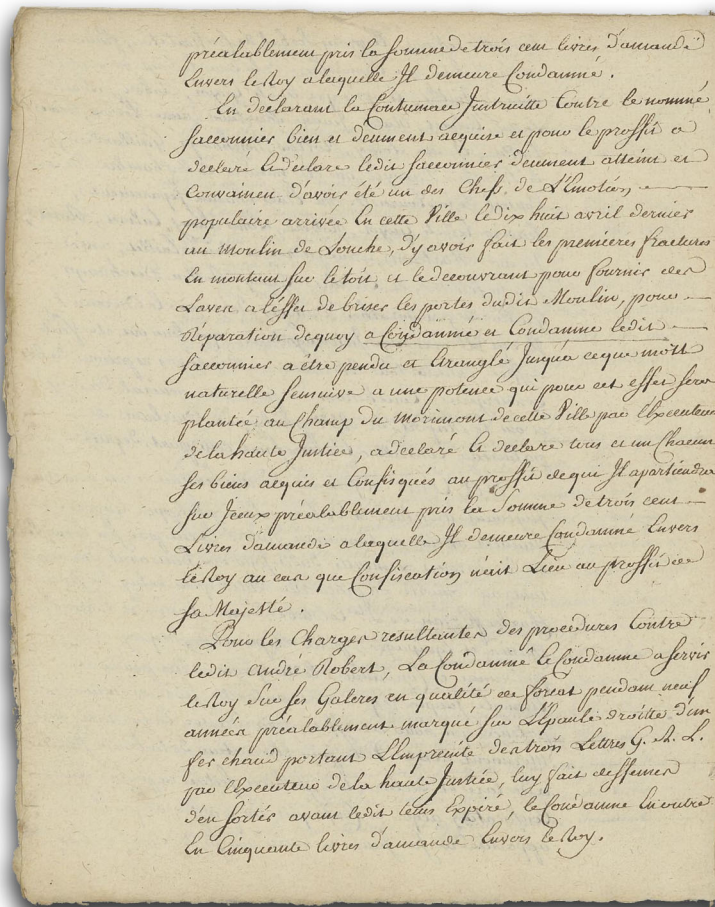 préalablement pris la somme de trois cent livres d'amande
Envers le Roy a laquelle Il demeure Condamné.
En declarant la Contumace Jnstruitte Contre le nommé
Sacconnier bien et deument acquise et pour le proffit a
declaré & declare ledit Sacconnier deument atteint et
Convaincu d'avoir été un des Chefs de L'Emotion
populaire arrivée En cette Ville le dix huit avril dernier
au Moulin de Louche, d'y avoir fait les premieres fractures
En montant sur le toit, et le decouvrant pour fournir des
Laves a l'effet de briser les portes dudit Moulin, pour
Réparation de quoy a Condamné et Condamne ledit
Sacconnier a être pendu et étranglé Jusqu'a ce que mort
naturelle sensuive a une potence qui pour cet effet sera
plantée au Champ du Morimont de cette Ville par l'Executeur
de la haute Justice, a declaré & declare tous et un Chacun
ses biens acquis et Confisqués au proffit de qui Jl apartiendra
sur Jceux préalablement pris la Somme de trois cent
Livres d'amande a laquelle Jl demeure Condamné Envers
le Roy au cas que Confiscation n'ait Lieu au proffit de
sa Majesté.
Pour les Charges resultantes des procedures Contre
ledit André Robert, La Condamné & le Condamne a servir
le Roy sur ses Galeres en qualité de forcat pendant neuf
années préalablement marqué sur L'Epaule droitte d'un
fer chaud portant L'Empreinte des trois Lettres G. A. L.
par l'Executeur de la haute Justice, luy fait deffenses
d'en sortir avant ledit tems Expiré, le Condamne En outre
En Cinquante livres d'amande Envers le Roy.